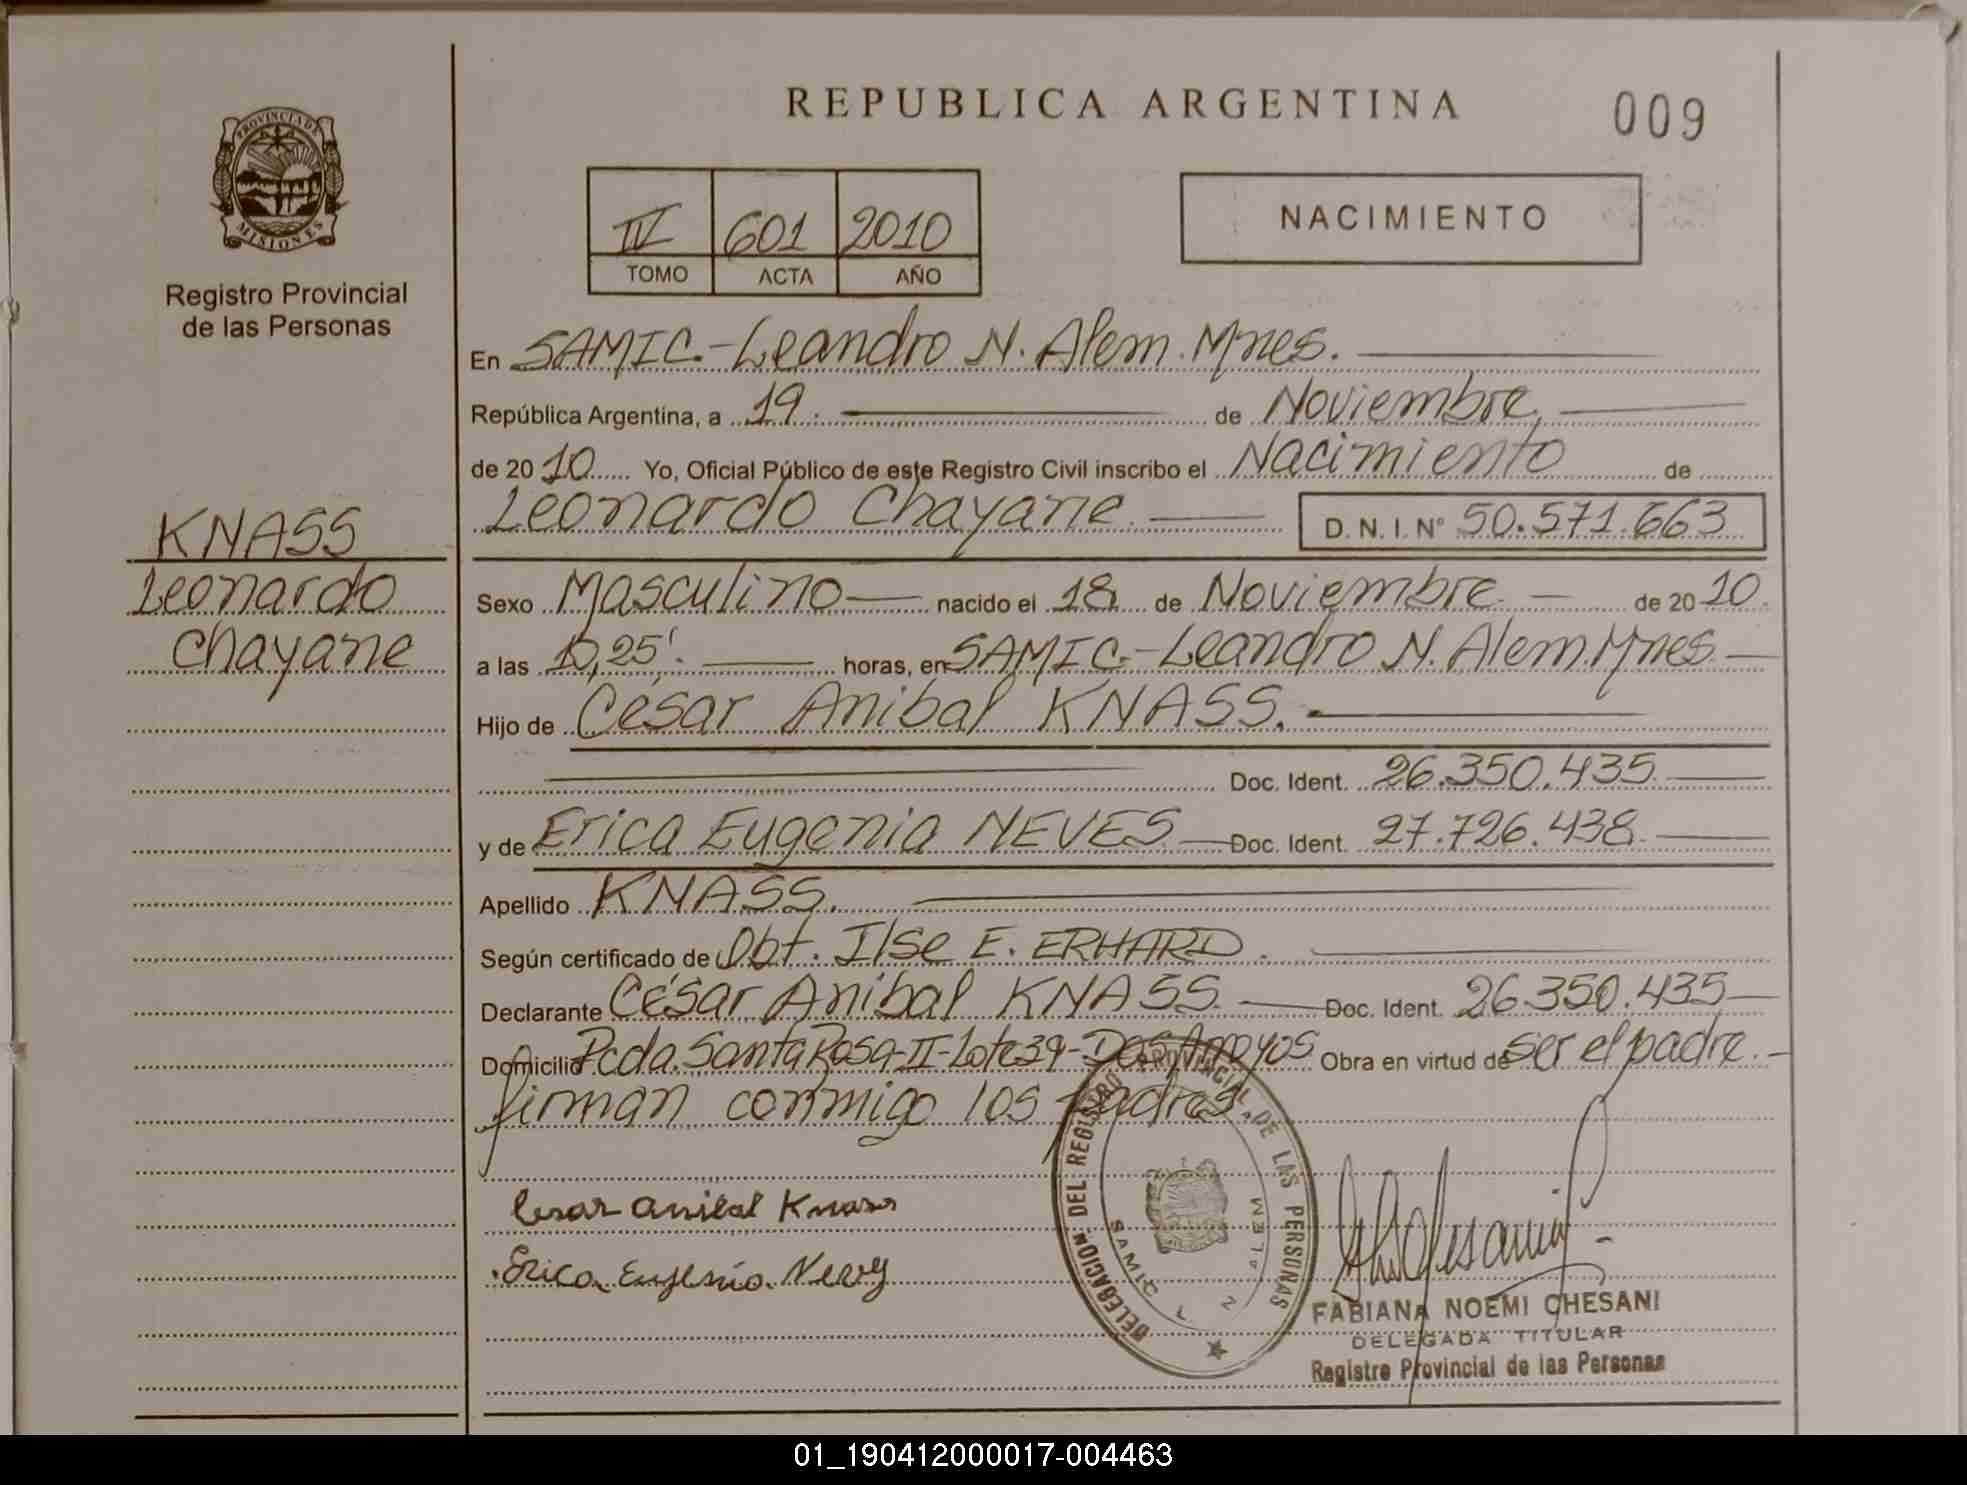 REPUBLICA ARGENTINA
009
PROVINCIA DE
MISIONES
Registro Provincial
de las Personas
IV 601 2010
TOMO ACTA AÑO
NACIMIENTO
En SAMIC.-Leandro N. Alem. Mnes.
República Argentina, a 19. de Noviembre
de 2010 Yo, Oficial Público de este Registro Civil inscribo el Nacimiento de
Leonardo Chayane D. N. I. N° 50.571.663
KNASS
Leonardo
Chayane
Sexo Masculino nacido el 18 de Noviembre de 2010.
a las 10,25'. horas, en SAMIC.-Leandro N. Alem. Mnes.
Hijo de César Anibal KNASS.
Doc. Ident. 26.350.435
y de Erica Eugenia NEVES Doc. Ident. 27.726.438
Apellido KNASS.
Según certificado de Obt. Ilse E. ERHARD.
Declarante César Anibal KNASS Doc. Ident. 26.350.435
Domicilio Pcda. Santa Rosa-II-Lote 39-Dos Arroyos Obra en virtud de ser el padre.
firman conmigo los padres.
Cesar Anibal Knass
Erica Eugenia Neves
DELEGACION DEL REGISTRO PROVINCIAL DE LAS PERSONAS
SAMIC L N ALEM
FABIANA NOEMI CHESANI
DELEGADA TITULAR
Registro Provincial de las Personas
01_190412000017-004463